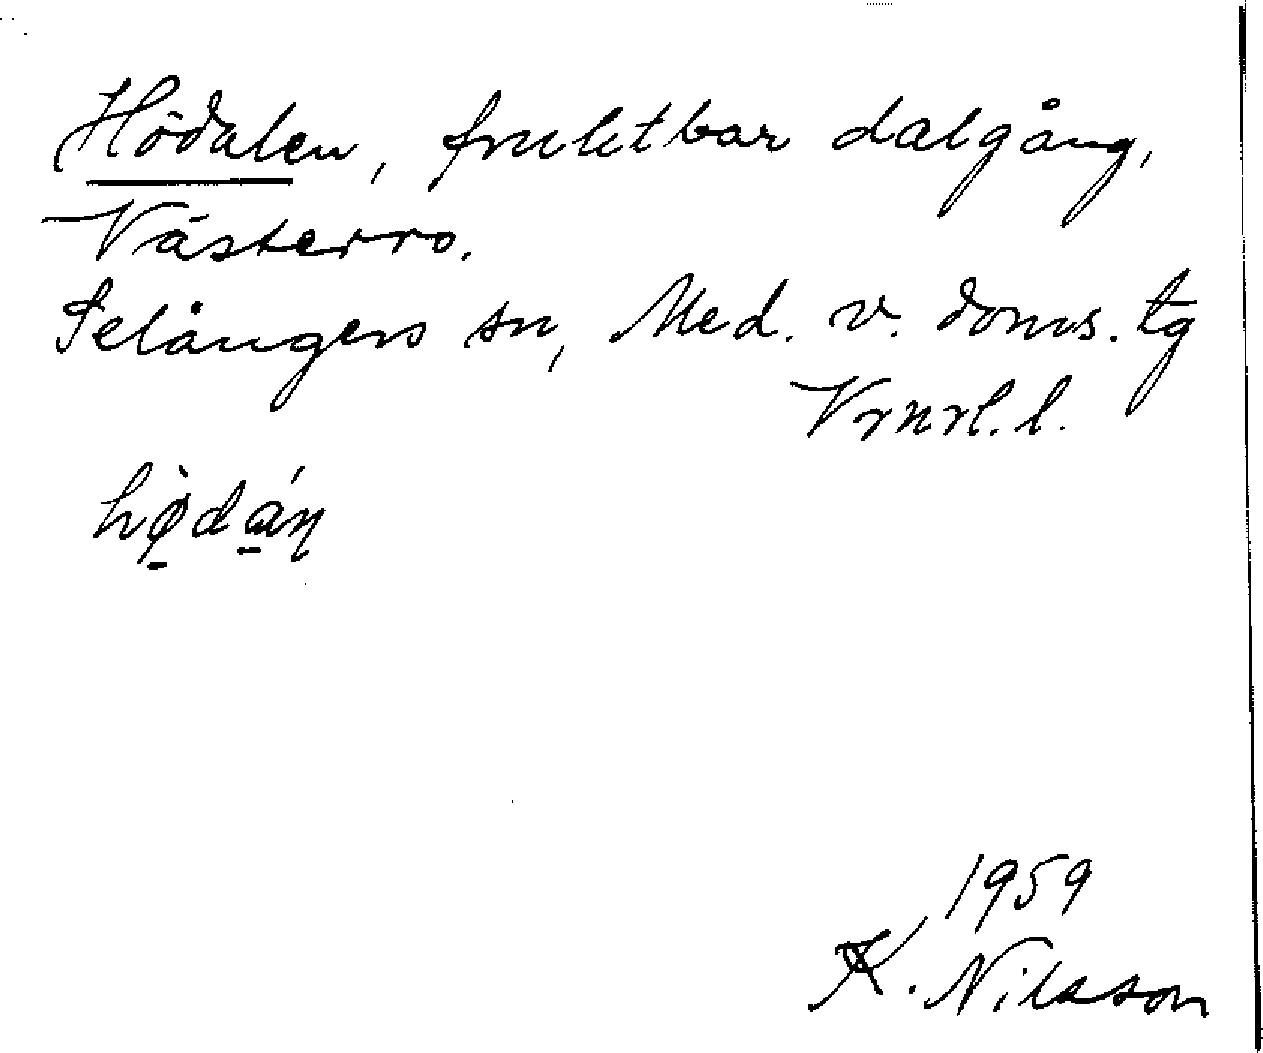 Hödalen, fruktbar dalgång,
Västerro.
Selångers sn, Med. v. doms. tg
Vrnrl. l.
hø̀dán
1959
K. Nilsson